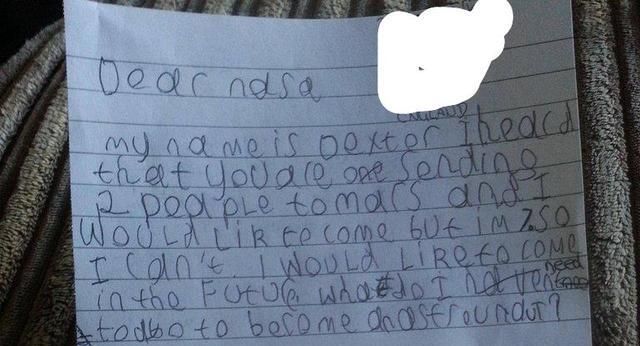 Dear nasa
ENGLAND
my name is Dexter I heard
that you are sending
2 peaple to mars and I
WOULD Lik to come but im 7. SO
I can't. I WOULD LiKe to come
in the FUTURE. what do I need
to do to become an astrounaut?